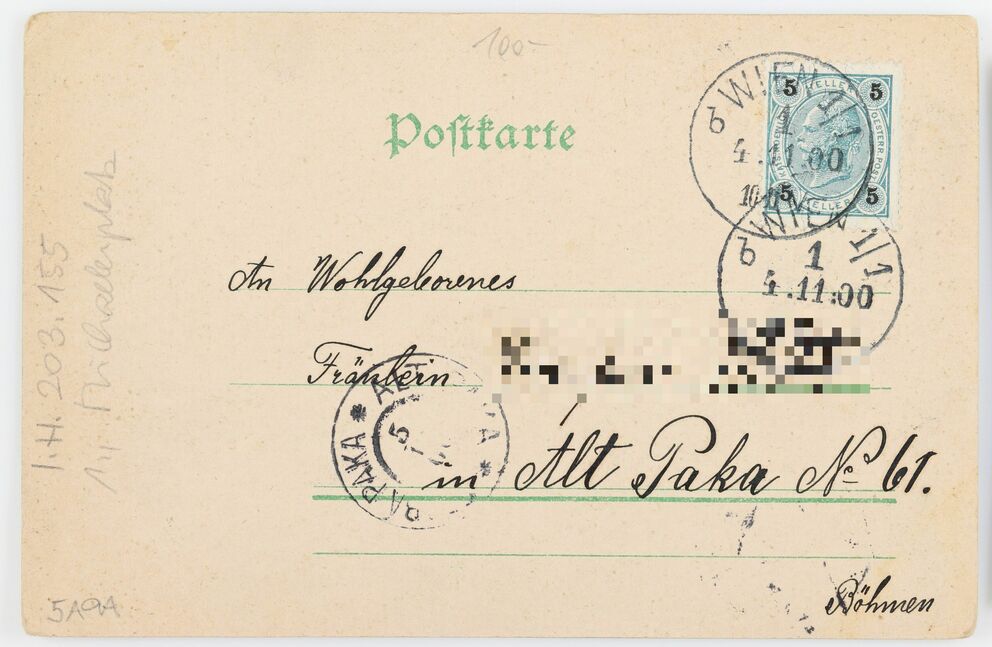 100-
Postkarte
b WIEN 1/1
1
4.11.00
5 HELLER 5
OESTERR. POST
5 HELLER 5
b WIEN 1/1
1
4.11.00
An Wohlgeborenes
Fräulein
in Alt Paka No 61.
Böhmen
ALT PAKA * PAKA *
5
I.H. 203.155
1., Michaelerplatz
5A9A